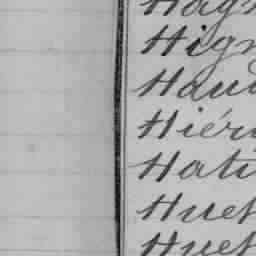 Hag
Hign
Haui
Hiér
Hati
Huet
Huet